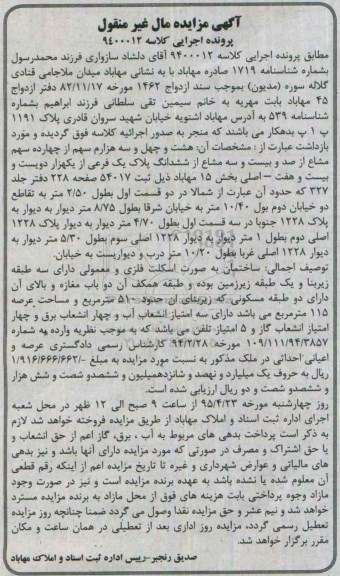 آگهی مزایده مال غیر منقول
پرونده اجرایی کلاسه ۹۴۰۰۰۱۲
مطابق پرونده اجرایی کلاسه ۹۴۰۰۰۱۲ آقای دلشاد سازواری فرزند محمدرسول
بشماره شناسنامه ۱۷۱۹ صادره مهاباد با به نشانی مهاباد میدان ملاجامی قنادی
گلاله سوره (مدیون) بموجب سند ازدواج ۱۴۶۲ مورخه ۸۲/۱۱/۱۷ دفتر ازدواج
۴۵ مهاباد بابت مهریه به خانم سیمین تقی سلطانی فرزند ابراهیم بشماره
شناسنامه ۵۳۹ به آدرس مهاباد اشنویه خیابان شهید سروان قادری پلاک ۱۱۹۱
پ ۱ پ بدهکار می باشند که منجر به صدور اجرائیه کلاسه فوق گردیده و مورد
بازداشت عبارت از : مشخصات آن: هشت و چهل و سه هزارم سهم از چهارده سهم
مشاع از صد و بیست و سه مشاع از ششدانگ پلاک یک فرعی از یکهزار دویست و
بیست و هفت – اصلی بخش ۱۵ مهاباد ذیل ثبت ۵۴۰۱۷ صفحه ۲۲۸ دفتر جلد
۳۲۷ که حدود آن عبارت از شمالا در دو قسمت اول بطول ۲/۵۰ متر به تقاطع
دو خیابان دوم بول ۱۰/۴۰ متر به خیابان شرقا بطول ۸/۷۵ متر دیوار به دیوار به
پلاک ۱۲۲۸ جنوبا در سه قسمت اول بطول ۴/۷۰ متر دیوار به دیوار پلاک ۱۲۲۸
اصلی دوم بطول ۱ متر دیوار به دیوار ۱۲۲۸ اصلی سوم بطول ۵/۳۰ متر دیوار به
دیوار ۱۲۲۸ اصلی غربا بطول ۱۰/۲۰ متر درب و دیواریست به خیابان.
توصیف اجمالی: ساختمان به صورت اسکلت فلزی و معمولی دارای سه طبقه
زیربنا و یک طبقه زیرزمین بوده و طبقه همکف آن دو باب مغازه و بالای آن
دارای دو طبقه مسکونی که زیربنای آن حدود ۵۱۰ مترمربع و مساحت عرصه
۱۱۵ مترمربع می باشد دارای سه امتیاز انشعاب آب و چهار انشعاب برق و چهار
امتیاز انشعاب گاز و ۵ امتیاز تلفن می باشد که به موجب نظریه وارده به شماره
۱۰۹/۱۱۱/۹۴/۳۸۵۷ مورخه ۹۴/۲/۲۸ کارشناس رسمی دادگستری عرصه و
اعیانی احداثی در ملک مذکور به نسبت مورد مزایده به مبلغ ۱/۹۱۶/۶۶۶/۶۶۲/-
ریال به حروف یک میلیارد و نهصد و شانزدهمیلیون و ششصدو شصت و شش هزار
و ششصدو شصت و دو ریال ارزیابی شده است.
روز چهارشنبه مورخه ۹۵/۴/۲۳ از ساعت ۹ صبح الی ۱۲ ظهر در محل شعبه
اجرای اداره ثبت اسناد و املاک مهاباد از طریق مزایده فروخته خواهد شد لازم
به ذکر است پرداخت بدهی های مربوط به آب ، برق، گاز اعم از حق انشعاب و
یا حق اشتراک و مصرف در صورتی که مورد مزایده دارای آنها باشد و نیز بدهی
های مالیاتی و عوارض شهرداری و غیره تا تاریخ مزایده اعم از اینکه رقم قطعی
آن معلوم شده یا نشده باشد به عهده برنده مزایده است و نیز در صورت وجود
مازاد وجوه پرداختی بابت هزینه های فوق از محل مازاد به برنده مزایده مسترد
خواهد شد و نیم عشر و حق مزایده نقدا وصول می گردد ضمنا چنانچه روز مزایده
تعطیل رسمی گردد، مزایده روز اداری بعد از تعطیلی در همان ساعت و مکان
مقرر برگزار خواهد شد.
صدیق رنجبر-رییس اداره ثبت اسناد و املاک مهاباد